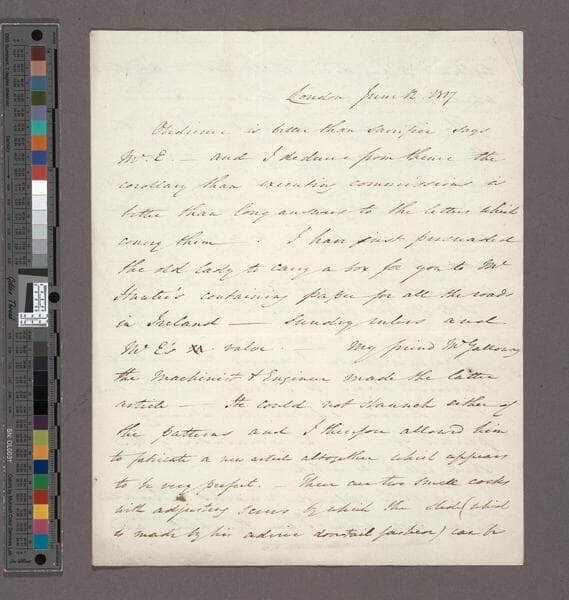 London June 12 1817
Obedience is better than sacrifice says
Mr. E. — and I deduce from thence the
corollary than executing commissions is
better than long answers to the letters which
convey them — . I have just persuaded
the old lady to carry a box for you to Mr
Hunter's containing paper for all the roads
in Ireland — Sundry rulers and
Mr E's valve. My friend Mr Galloway
the Machinist & Engineer made the latter
article — He could not staunch either of
the patterns and I therefore allowed him
to fabricate a new article altogether which appears
to be very perfect. — There are two small cocks
with adjusting screws by which the slide (which
is made by his advice dovetail fashion) can be